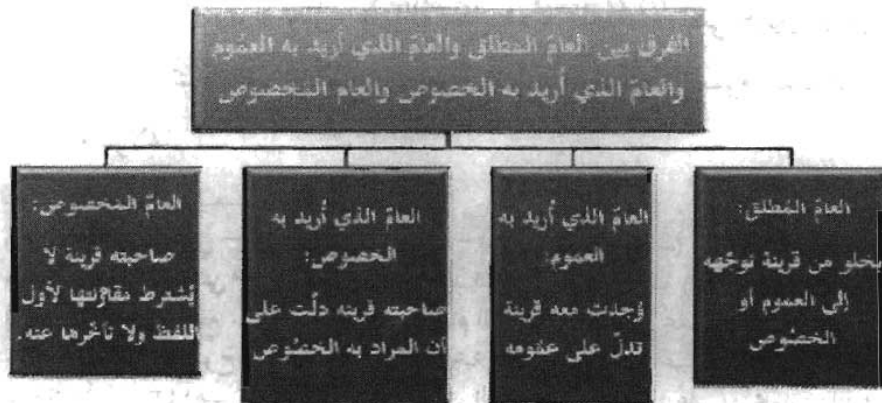 الفرق بين العامّ المُطلق والعامّ الذي أُريد به العمُوم
والعامّ الذي أُريد به الخصُوص والعام المَخصُوص
العامّ المُطلق:
يخلو من قرينة توجّهه
إلى العموم أو
الخصُوص
العامّ الذي أُريد به
العموم:
وُجدت معه قرينة
تدلّ على عمُومه
العامّ الذي أُريد به
الخصُوص:
صاحبته قرينة دلّت على
أن المراد به الخصُوص
العامّ المَخصوص:
صاحبته قرينة لا
يُشترط مقارَنتها لأول
اللفظ ولا تأخّرها عنه.